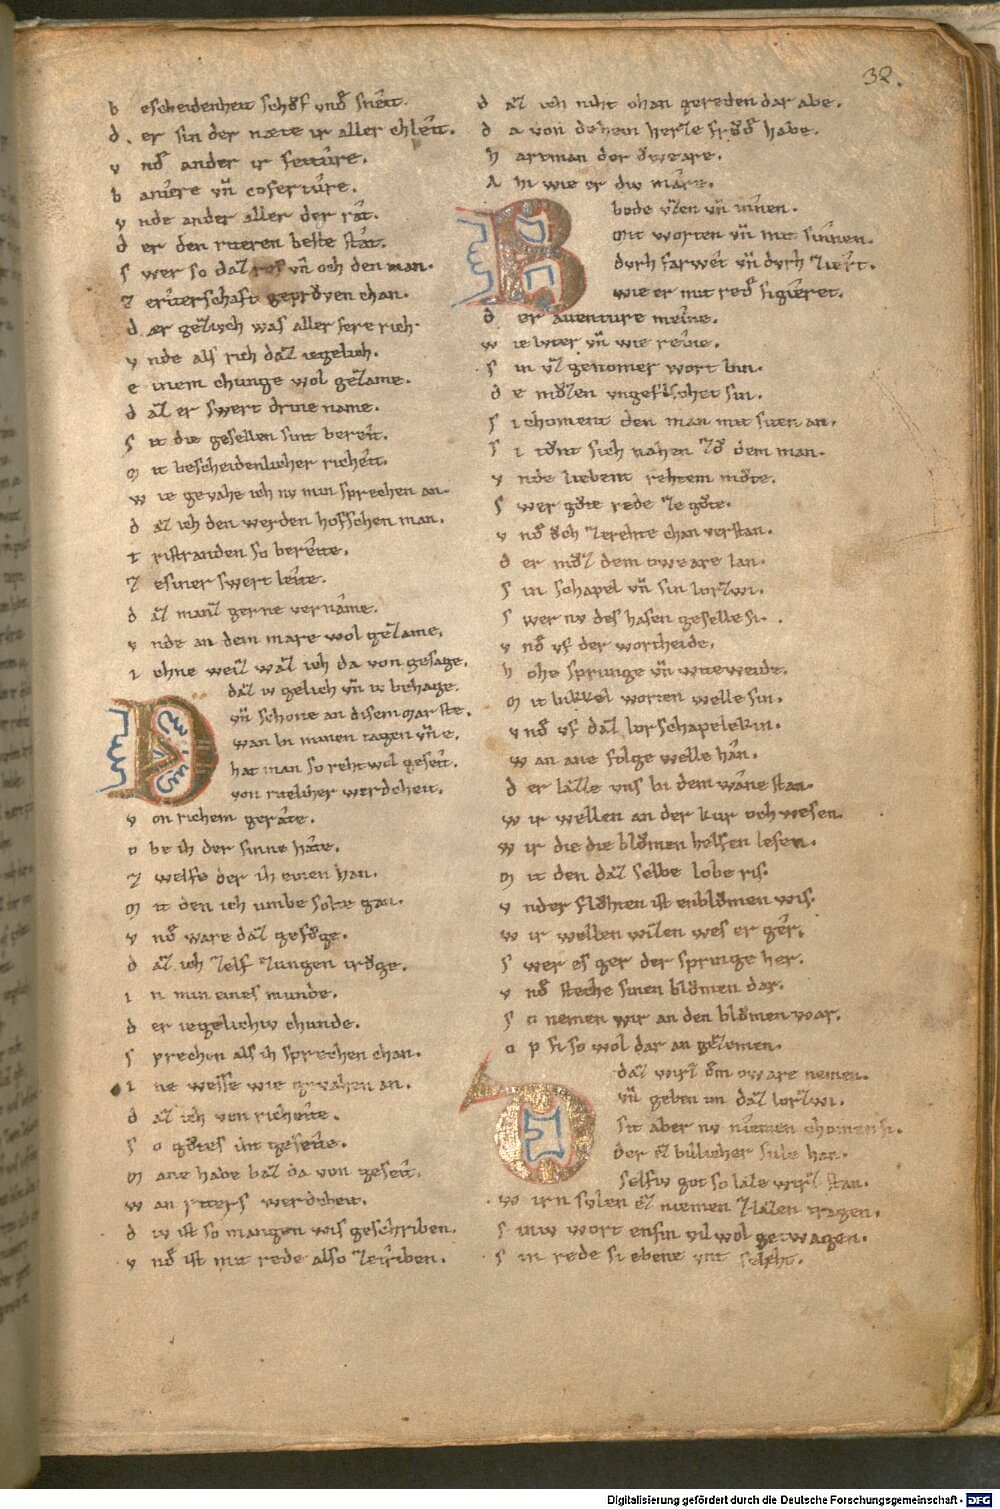 32.
b escheidenheit schůf vnď sneit.
d. er sin der næte ir aller chleit.
v nď ander ir feitiure.
b aniere vn̄ cofertiure.
v nde ander aller der rât.
d er den riteren beste stât.
s wer so daz ros vn̄ och den man.
z eriterschaft geprůven chan.
d ær gezivch was aller sere rich.
v nde als rich daz iegelich.
e inem chunge wol gezame.
d az er swert drine name.
s it die gesellen sint bereit.
m it bescheidenlicher richeit.
w ie gevahe ich nv min sprechen an.
d az ich den werden hofschen man.
t ristranden so bereite.
z esiner swert leite.
d az manz gerne vernâme.
v nde an dem mare wol gezame.
i chne weiz waz ich da von gesage.
daz iv gelich vn̄ iv behage.
vn̄ schone an disem mar ste.
wan bi minen tagen vn̄ e.
hat man so reht wol geseit.
von ritelicher werdcheit.
v on richem gerâte.
o be ih der sinne hâte.
z welfe der ih einen han.
m it den ich umbe solte gan.
v nď ware daz gefůge.
d az ich zelf zungen trůge.
i n min eines munde.
d er iegelichiv chunde.
s prechen als ih sprechen chan.
i ne wesse wie gevahen an.
d az ich von richeite.
s o gůtes iht geseite.
m ane habe baz da von geseit.
w an ritters werdcheit.
d iv ist so mangen wis geschriben.
v nď ist mit rede also zetriben.
d az ich niht chan gereden dar abe.
d a von dehein herze frůď habe.
h artman der ǒweare.
a hi wie er div mâre.
B eide vzen vn̄ innen.
mit worten vn̄ mit sinnen.
dvrh farwet vn̄ dvrh ziert.
wie er mit reď figieret.
d er auenture meine.
w ie lvter vn̄ wie reine.
s in vz genomer wort bin.
d e můzen ungefischet sin.
s i choment den man mit siten an.
s i tůnt sich nahen zů dem man.
v nde liebent rehtem můte.
s wer gůte rede ze gůte.
v nď ǒch zerehte chan verstan.
d er můz dem oweare lan.
s in schapel vn̄ sin lorzwi.
s wer nv des hasen geselle si.
v nď vf der wortheide.
h ohe sprunge vn̄ witeweide.
m it bikkel worten welle sin.
v nď vf daz lorschapelekin.
w an ane folge welle hân.
d er lazze vns bi dem wâne stan.
w ir wellen an der kur och wesen.
w ir die die blůmen helfen lesen.
m it den daz selbe lobe ris.
v nder flohten ist enblůmen wis.
w ir wellen wizen wes er ger.
s wer es ger der springe her.
v nď steche sinen blůmen dar.
s o nemen wir an den blůmen war.
o p si so wol dar an gezemen.
daz wirz dem oware nemen.
vn̄ geben im daz lorzwi.
sit aber nv niemen chomen si.
der ez billicher sule han.
selfiv got so laze wirz stan.
w irn sylen ez niemen zlazen tragen.
s iniv wort ensin vil wol getwagen.
s in rede si ebene vnt sleht.
Digitalisierung gefördert durch die Deutsche Forschungsgemeinschaft - DFG